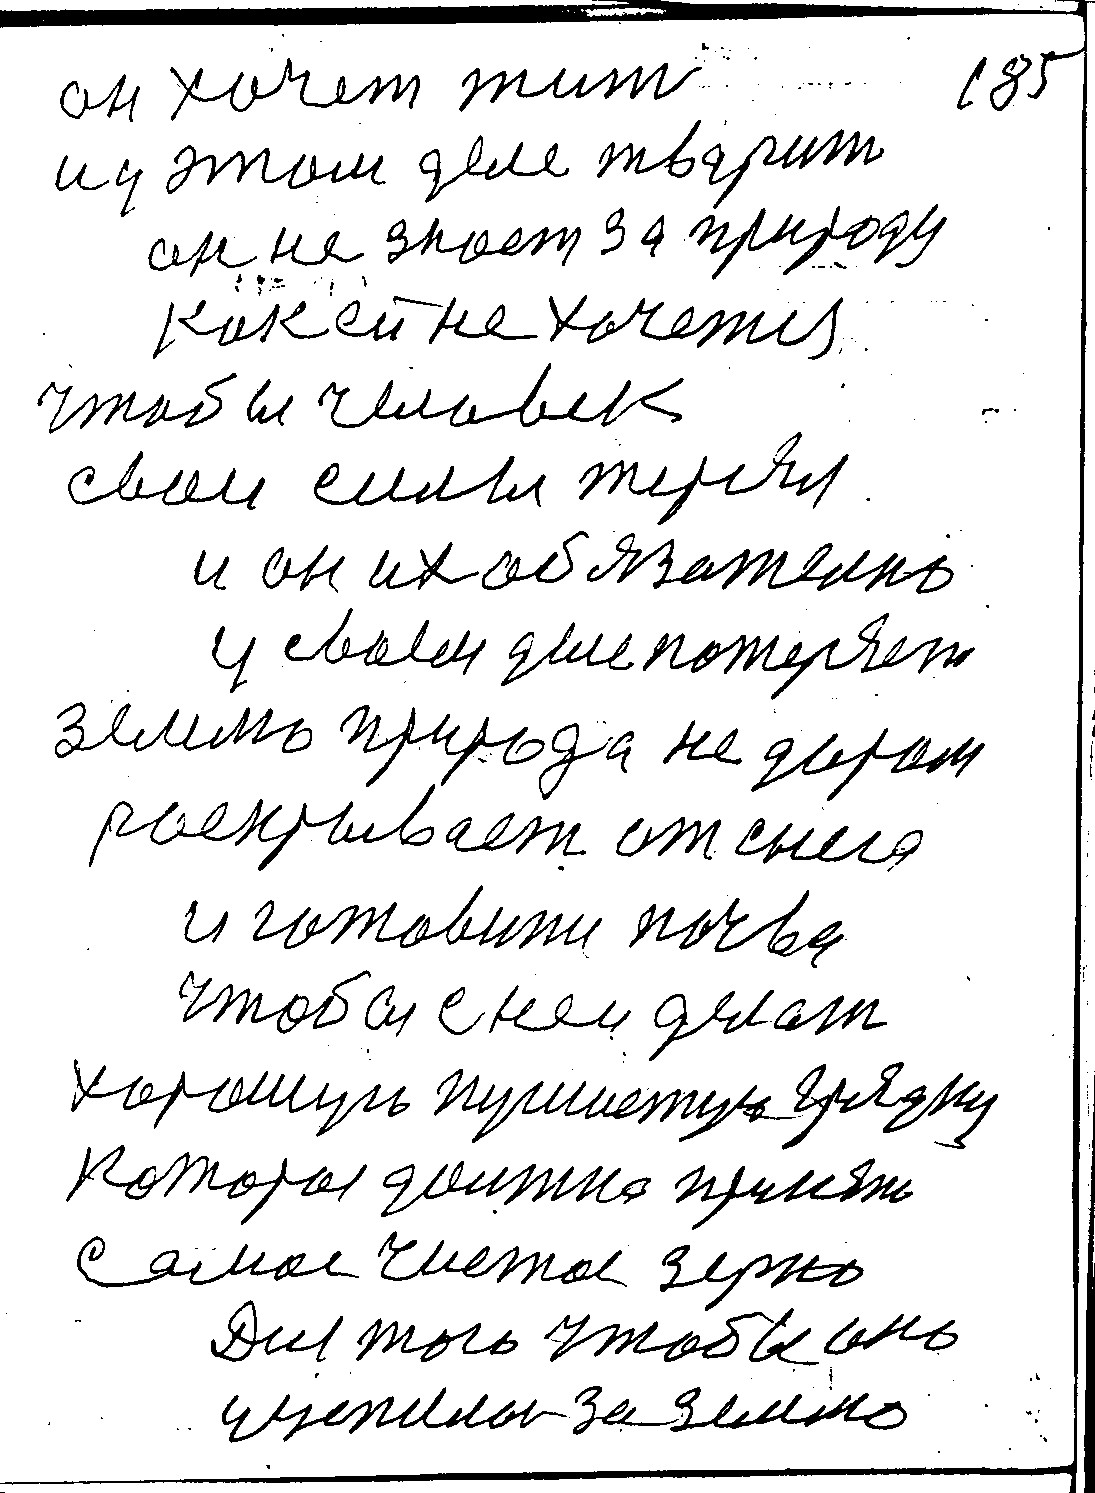 185
он хочет жит
и у этом деле тварит
он не знает за природу
как ей не хочется
чтобы человек
свои силы терял
и он их обязателно
у своем деле потеряет
землю природа не даром
раскрывает от снега
и готовит почва
чтобы с неи делат
хорошую пушистую грядку
которая должна принять
самое чистое зерно
Для того чтобы оно
за землю